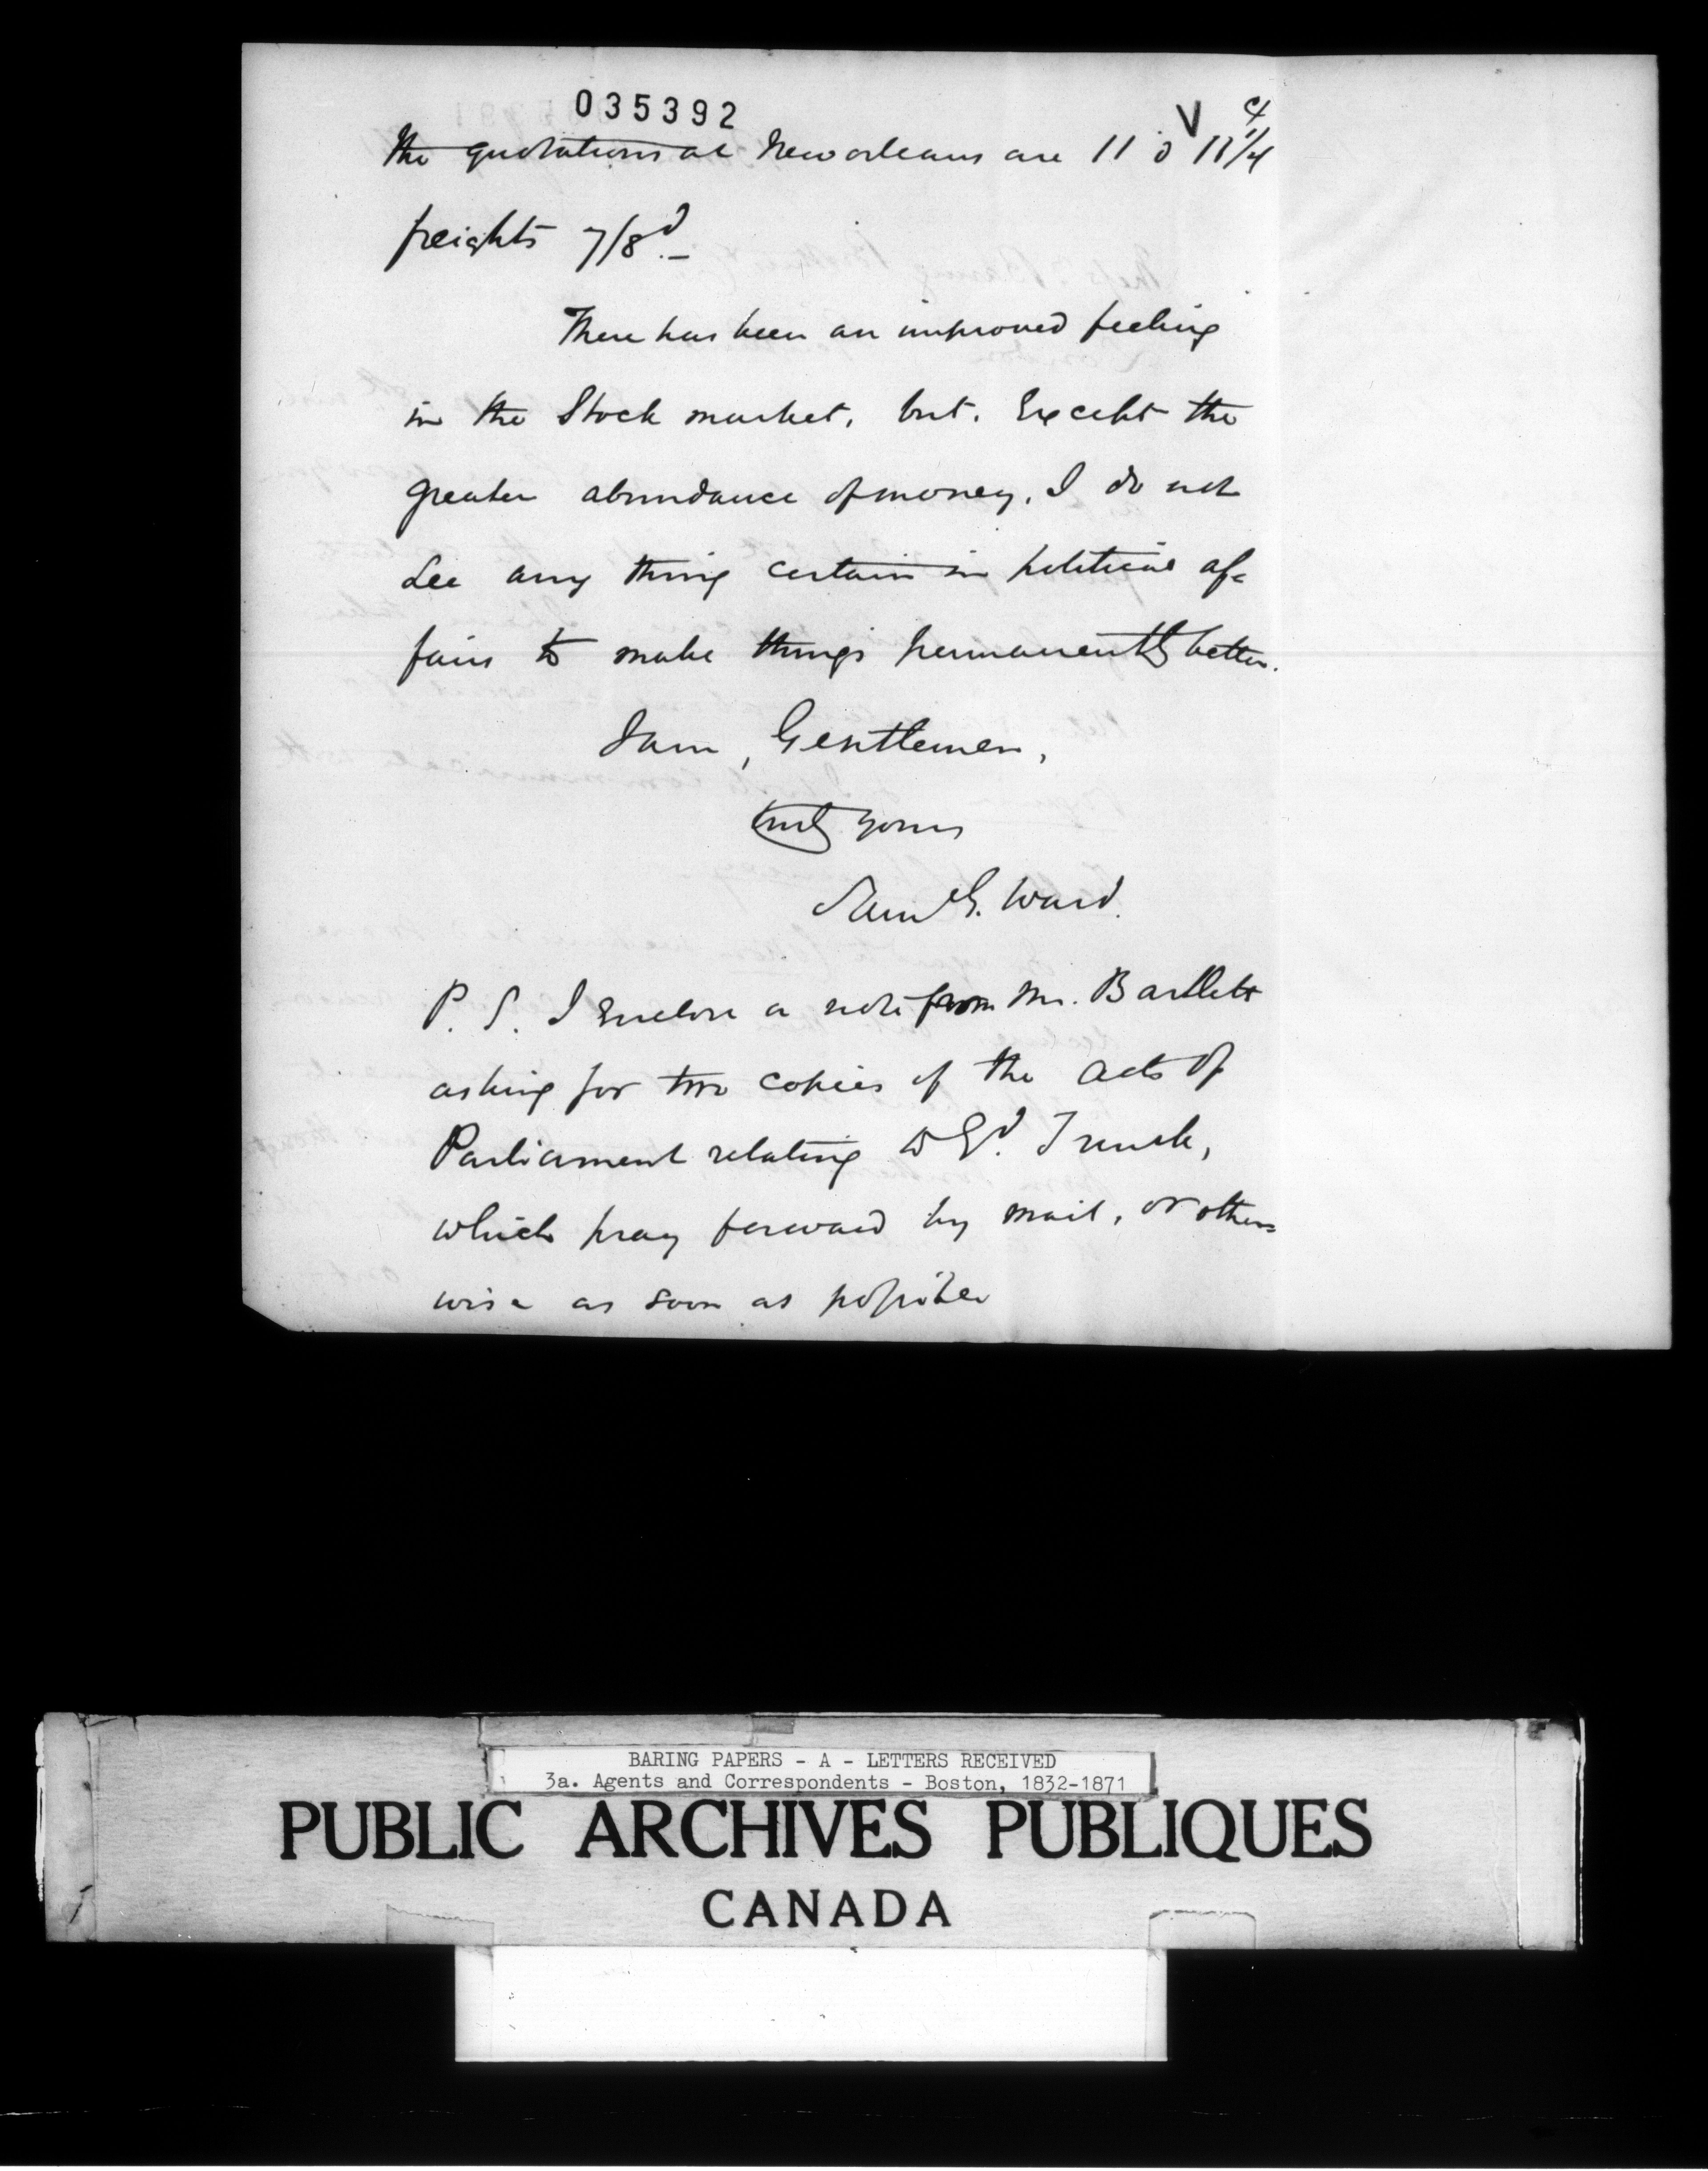 035392
V
the quotations at New orleans are 11 @ 11 1/4 c/
freights 7/8d.
There has been an improved feeling
in the Stock market, but, Except the
greater abundance of money, I do not
see any thing certain in political af=
fairs to make things permanently better.
I am, Gentlemen,
truly yours
Sam G. Ward.
P. S. I Enclose a note from Mr. Bartlett
asking for two copies of the Acts of
Parliament relating to Gd. Trunk,
which pray forward by mail, or other=
wise as soon as possible
BARING PAPERS - A - LETTERS RECEIVED
3a. Agents and Correspondents - Boston, 1832-1871
PUBLIC ARCHIVES PUBLIQUES
CANADA